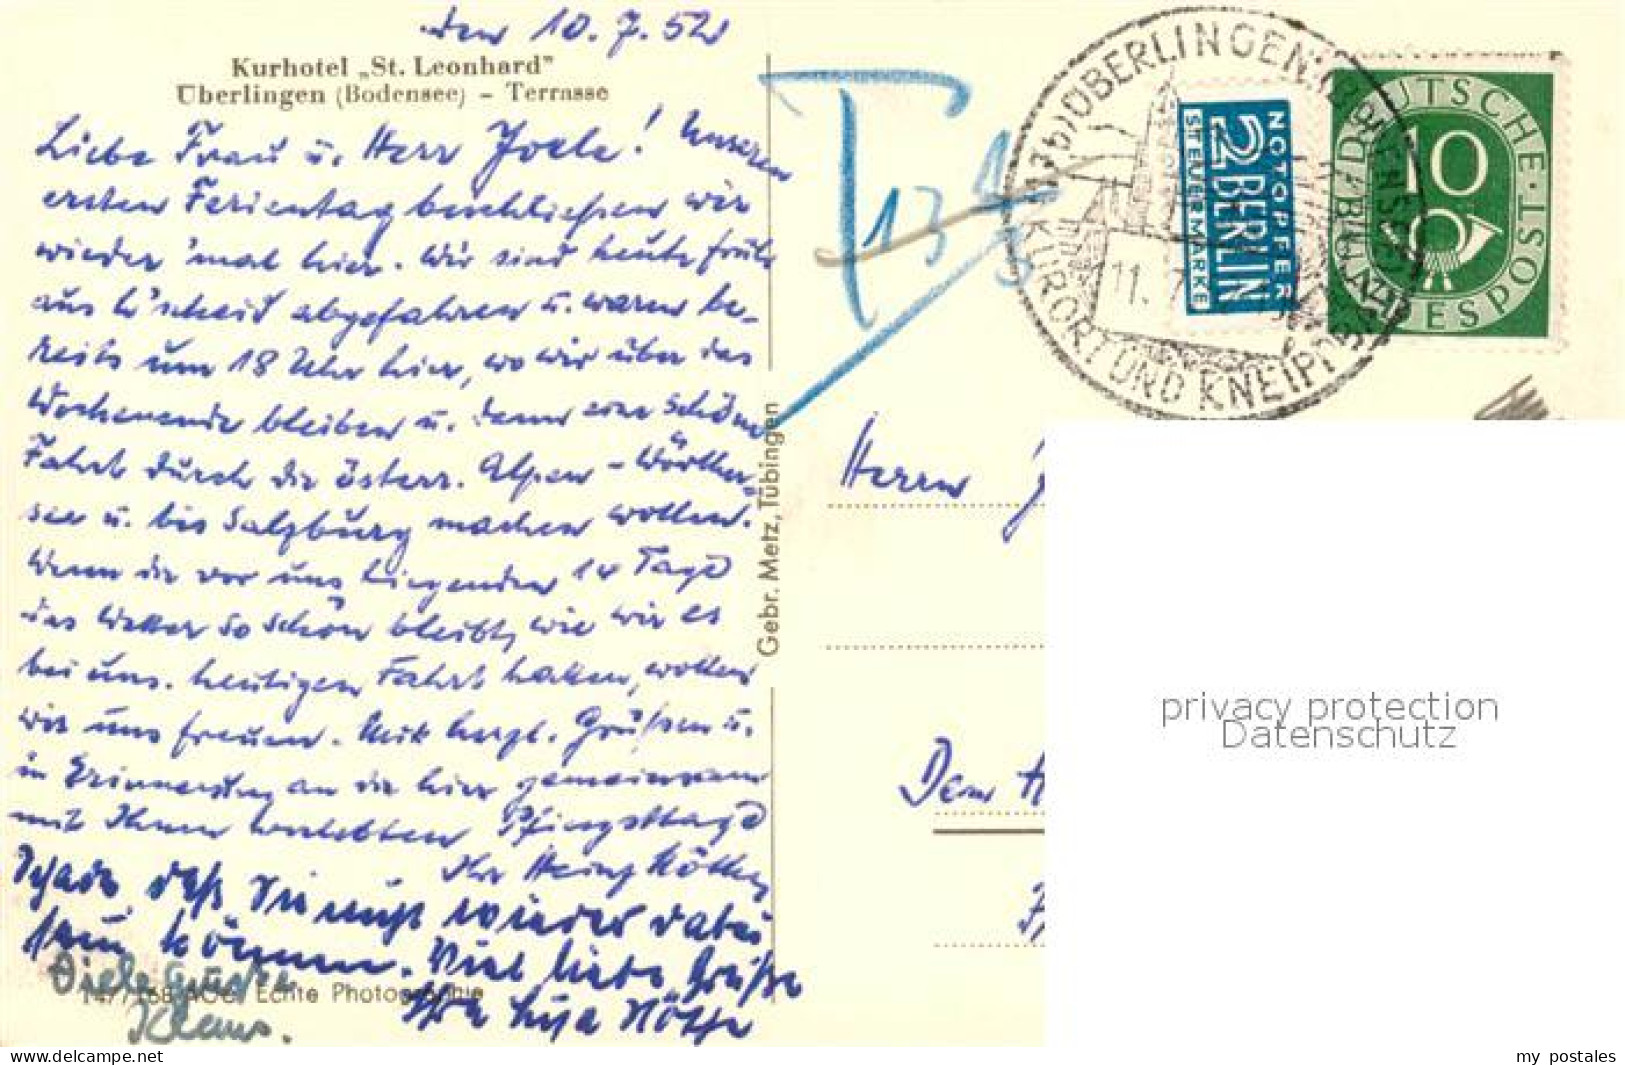 den 10.7.52
Kurhotel „St. Leonhard"
Überlingen (Bodensee) – Terrasse
Liebe Frau u. Herr! Unseren
ersten Ferientag beschließen wir
wieder 'mal hier. Wir sind heute früh
aus L'scheid abgefahren u. waren be-
reits um 18 Uhr hier, wo wir über das
Wochenende bleiben u. dann eine schöne
Fahrt durch die österr. Alpen – Wörther-
see u. bis Salzburg machen wollen.
Wenn die vor uns liegenden 14 Tage
das Wetter so schön bleibt, wie wir es
bei uns. heutigen Fahrt hatten, wollen
wir uns freuen. Mit herzl. Grüßen u.
in Erinnerung an die hier gemeinsam
mit Ihnen verlebten Pfingsttage
Ihr Heinz
Schade, daß Sie nicht wieder dabei
sein können. Viel liebe Grüße
Ihre
Viele Grüße
Klaus.
Echte Photographie
Gebr. Metz, Tübingen
T
ÜBERLINGEN (BODENSEE)
KURORT UND KNEIPPBAD
11.7.
NOTOPFER
2 BERLIN
STEUERMARKE
DEUTSCHE BUNDESPOST
10
Herrn
privacy protection
Datenschutz
www.delcampe.net
my_postales